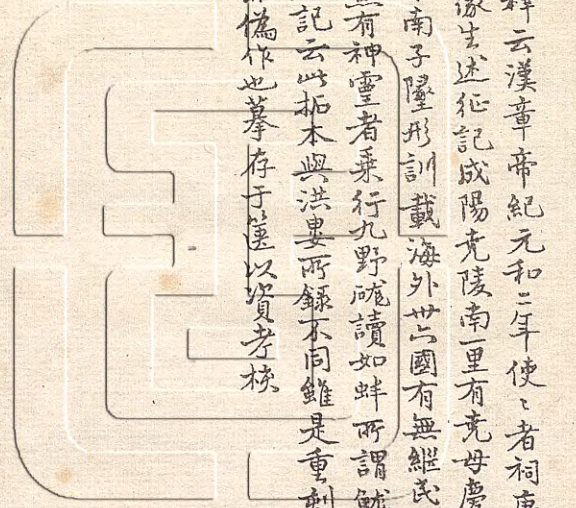 釋云漢章帝紀元和二年使〻者祠唐
緣生述征記成陽堯陵南一里有堯母慶
南子墬形訓載海外卅六國有無繼民
有神靈者乘行九野硥讀如蚌所謂魷
記云此拓本與洪婁所錄不同雖是重刻
偽作也摹存于箧以資考校